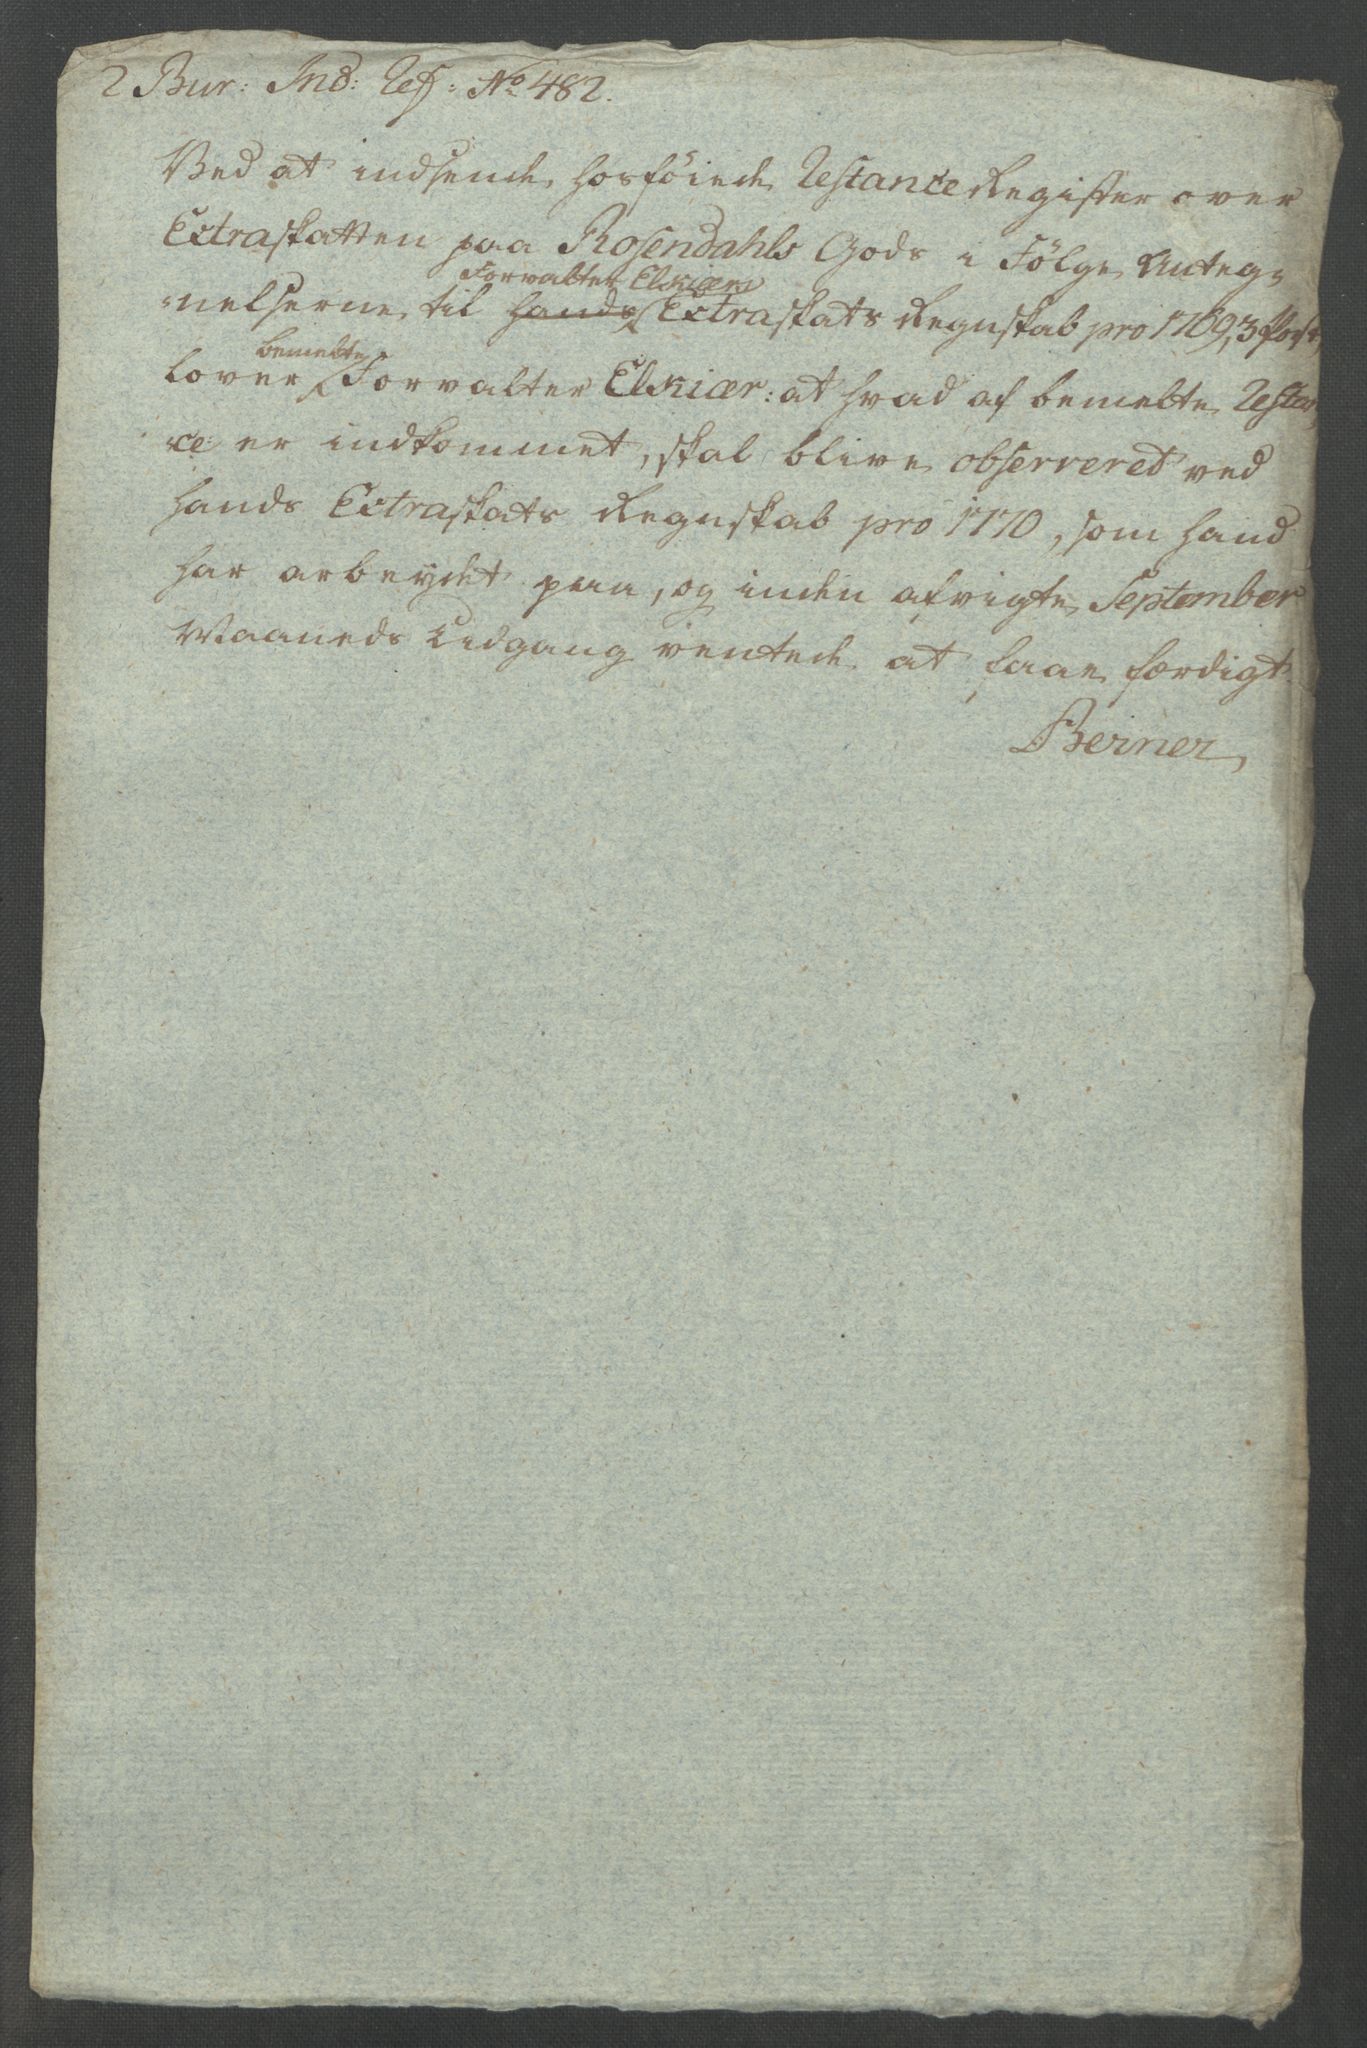 2 Bur: Ind: Ref: No 482.
Ved at indsende hosföiede Restance Register over
Extraskatten paa Rosendahls Gods i Fölge Anteg=
Forvalter Elkiærs
=nelserne til hands Extraskats Regnskab pro 1769, 3 Post,
bemelte
lover Forvalter Elkiær: at hvad af bemelte Restan,
ce er indkommet, skal blive observeret ved
hands Extraskats Regnskab pro 1770, som hand
har arbeydet paa, og inden afvigte September
Maaneds Udgang ventede at faae færdigt.
Berner